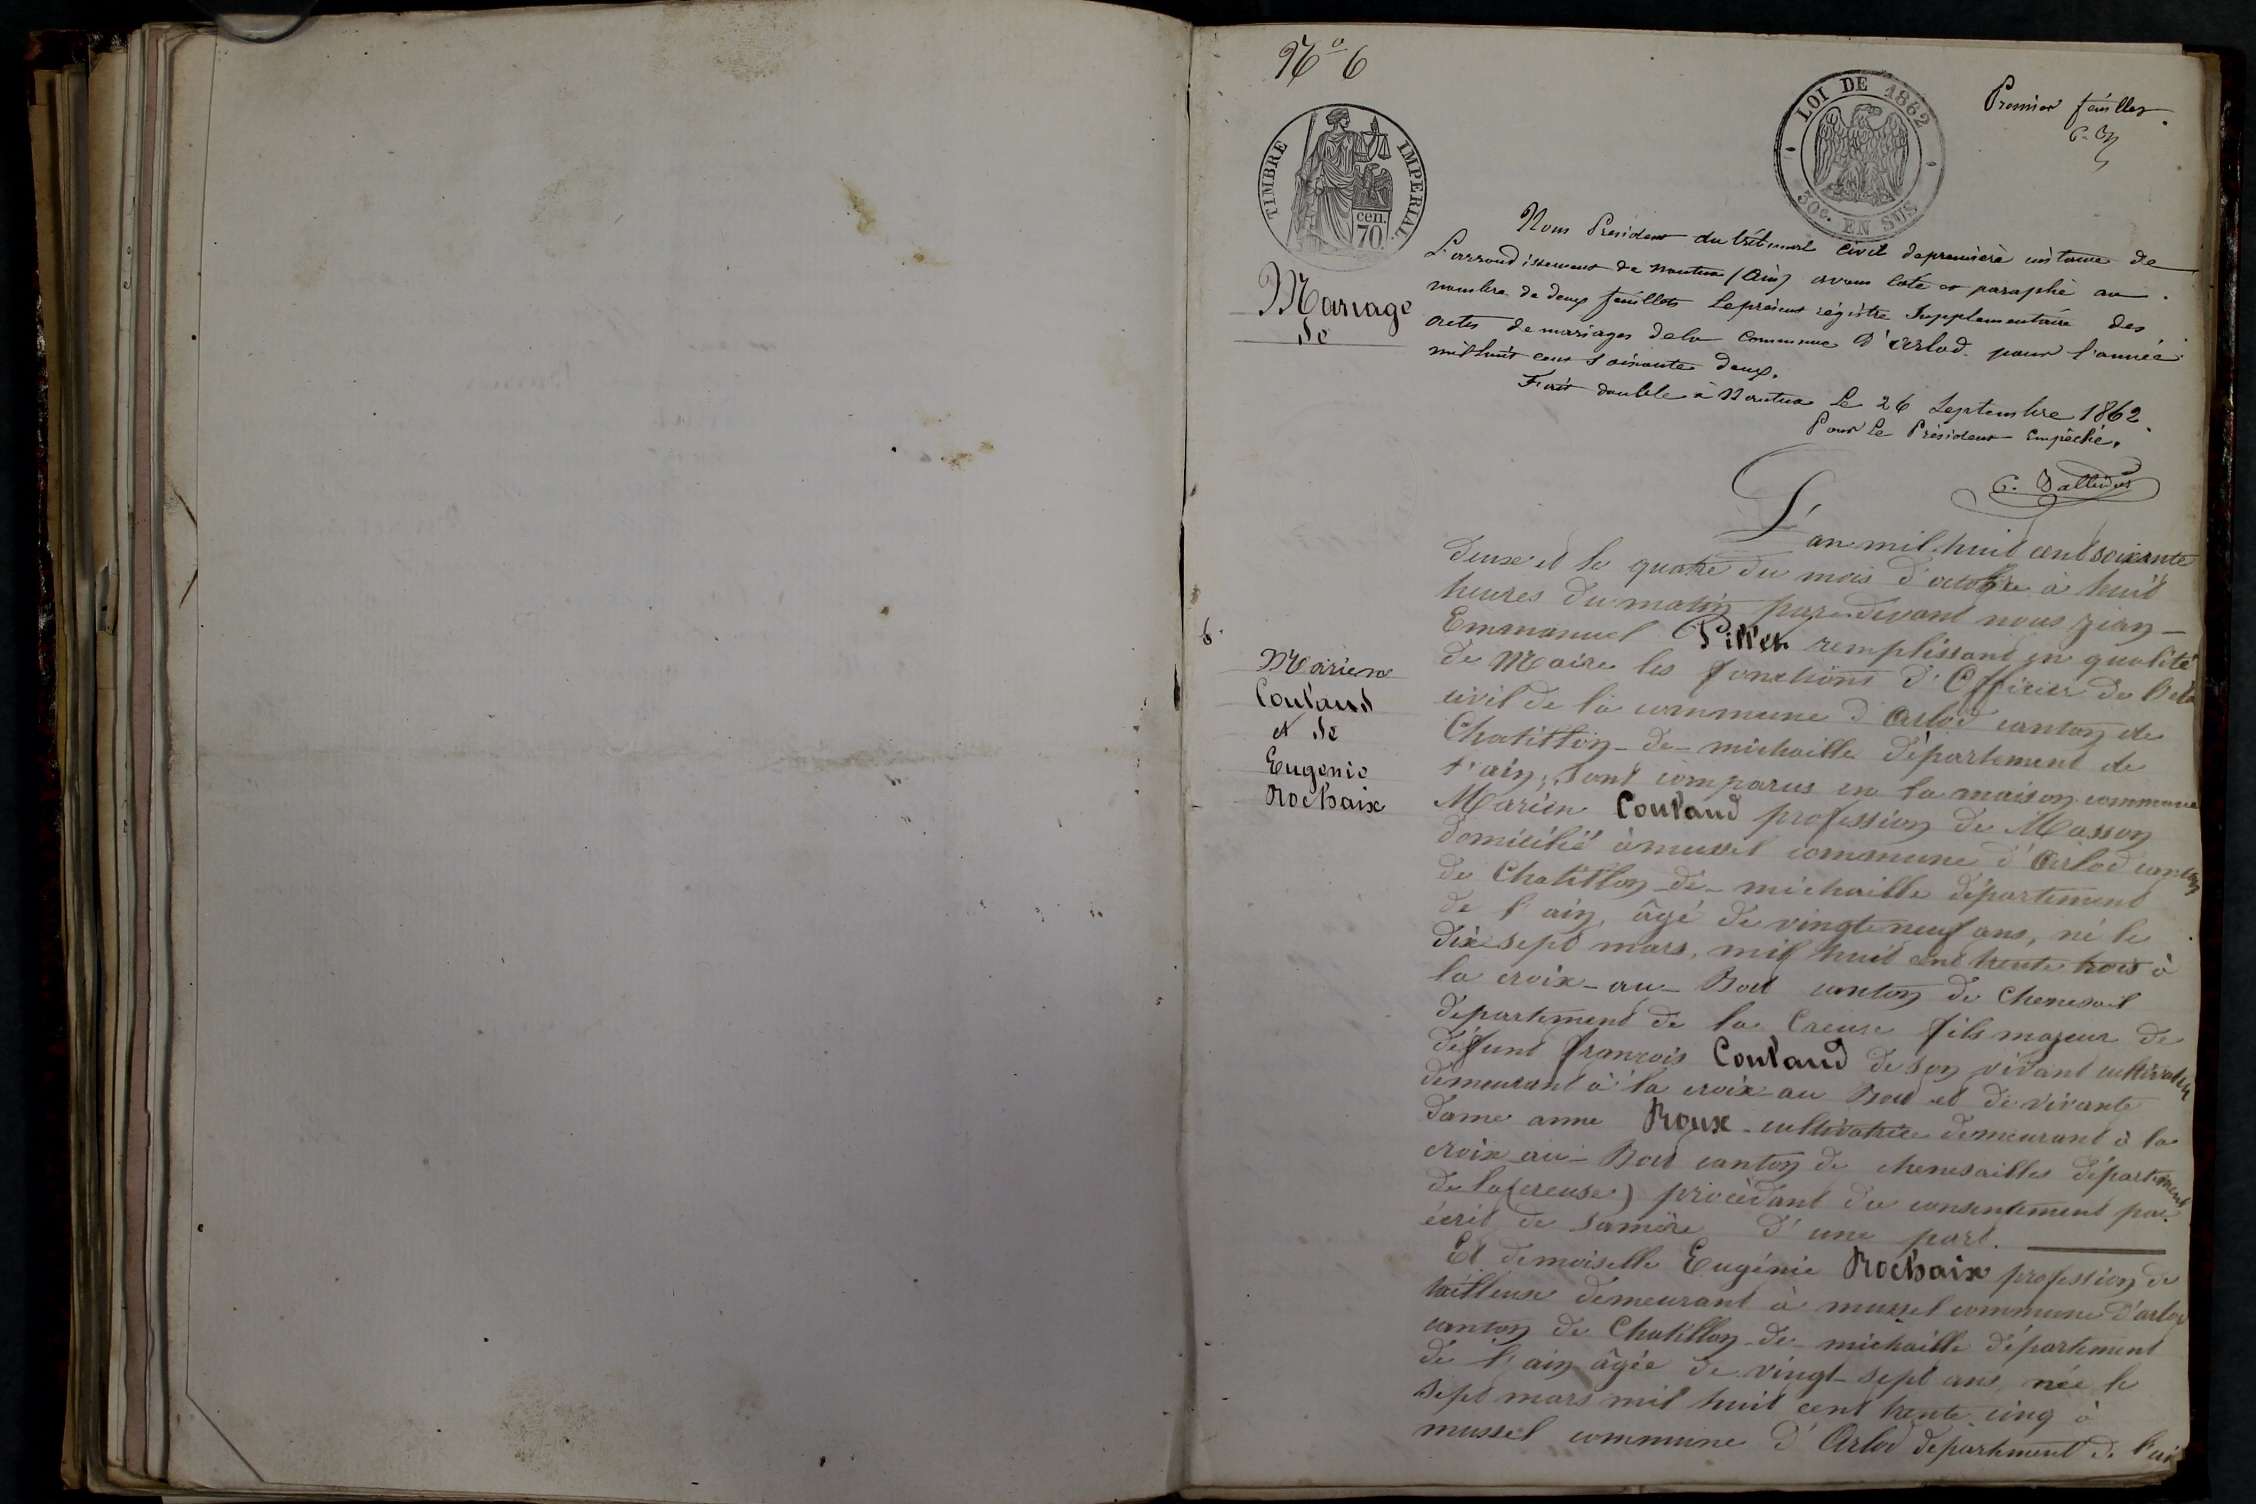 Nº 6
TIMBRE IMPERIAL
cen.
70
LOI DE 1862
30c. EN SUS
Premier feuillet.
Nous Président du tribunal Civil de première instance de
L'arrondissement de Nantua (Ain) avons coté et paraphé au
nombre de deux feuillets Le présent régistre Supplementaire des
actes de mariages de la Commune d'Arlod pour l'année
mil huit cent soixante deux.
Fait double à Nantua Le 26 Septembre 1862.
Pour Le Président Empêché,
Mariage
de
6.
Marien
Coulaud
et de
Eugenie
Rochaix
L'an mil huit cent soixante
deux et le quatre du mois d'octobre à huit
heures du matin par devant nous Jean
Emmanuel Pillet remplissant en qualité
de Maire les fonctions d'Officier de l'etat
civil de la commune d'Arlod canton de
Chatillon-de-michaille département de
l'ain, sont comparus en la maison commune
Marien Coulaud profession de Masson
domicilié à mussel commune d'Arlod canton
de Chatillon-de-michaille département
de l'ain, âgé de vingt neuf ans, né le
dix sept mars, mil huit cent trente trois à
la croix-au-Bost canton de Chenerail
département de la Creuse fils majeur de
défunt françois Coulaud de son vivant cultivateur
demeurant à la croix au Bost et de vivante
dame anne Roux cultivatrice demeurant à la
croix-au-Bost canton de chenesailles département
de la (creuse) procèdant du consentement par
écrit de sa mère d'une part.
Et demoiselle Eugénie Rochaix profession de
tailleuse demeurant à mussel commune d'arlod
canton de Chatillon-de-michaille département
de l'ain âgée de vingt-sept ans née le
sept mars mil huit cent trente-cinq à
mussel commune d'Arlod departement de l'ain